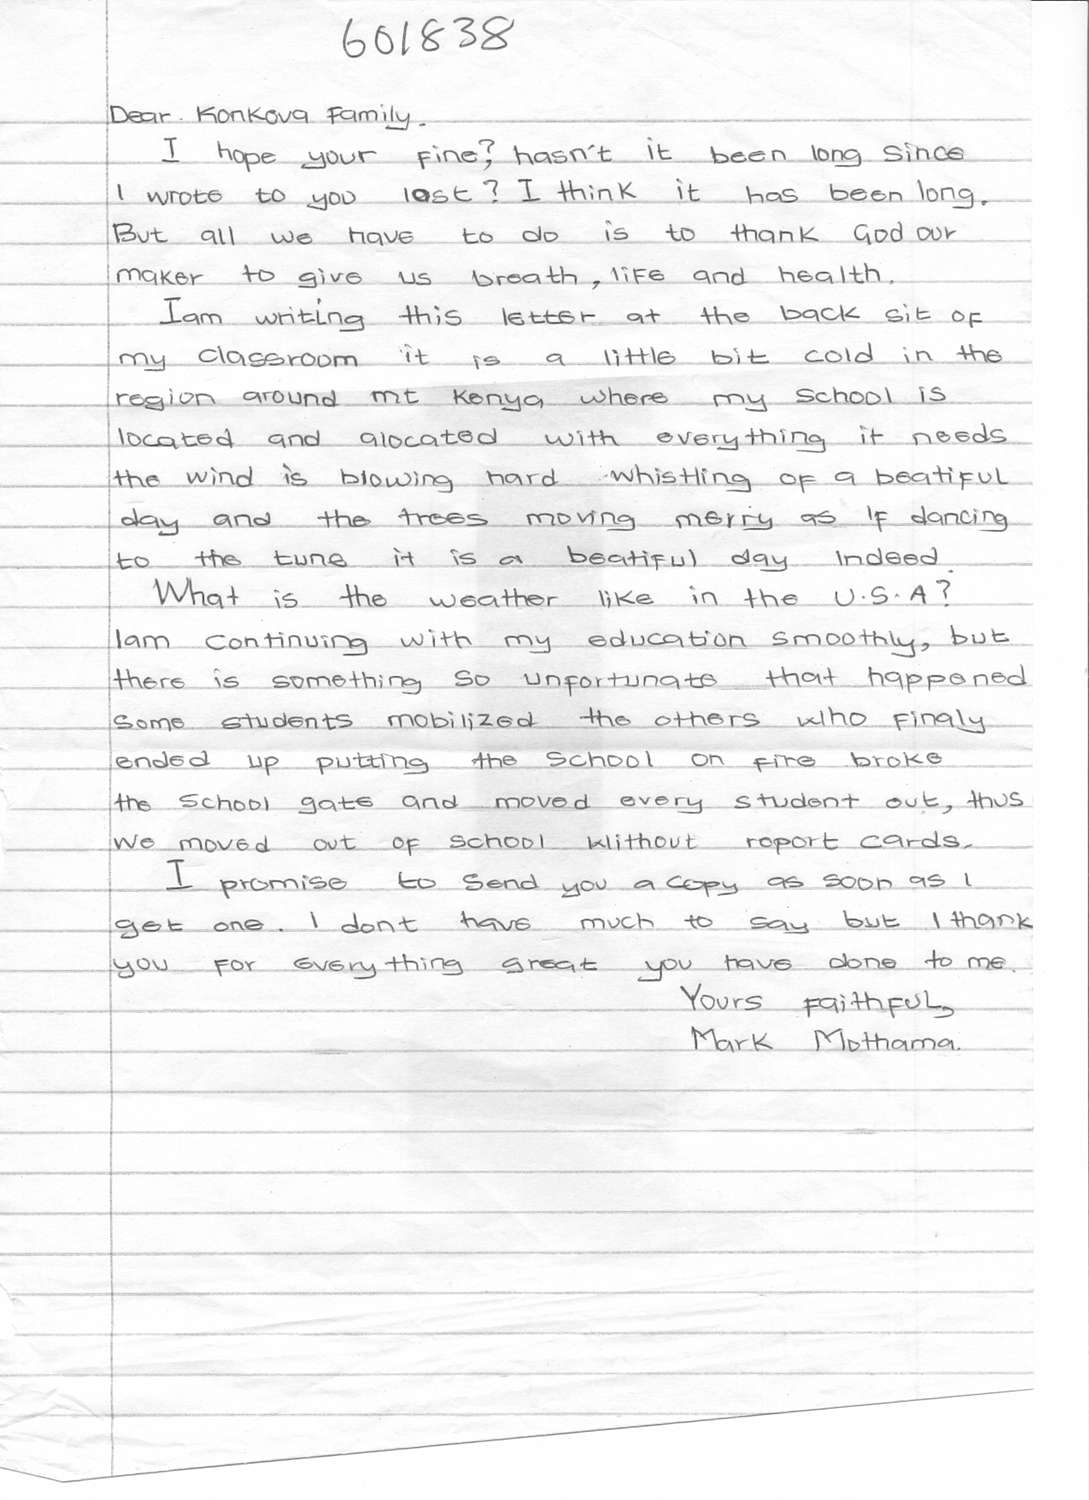 601838
Dear. Konkova Family.
I hope your fine?, hasn't it been long since
I wrote to you last? I think it has been long.
But all we have to do is to thank God our
maker to give us breath, life and health.
Iam writing this letter at the back sit of
my classroom it is a little bit cold in the
region around mt Kenya where my school is
located and alocated with everything it needs
the wind is blowing hard whistling of a beatiful
day and the trees moving merry as if dancing
to the tune it is a beatiful day indeed.
What is the weather like in the U.S.A?
Iam continuing with my education smoothly, but
there is something so unfortunate that happened
some students mobilized the others who finaly
ended up putting the school on fire broke
the school gate and moved every student out, thus
we moved out of school without report cards.
I promise to send you a copy as soon as I
get one. I dont have much to say but I thank
you for everything great you have done to me.
Yours faithful,
Mark Mothama.